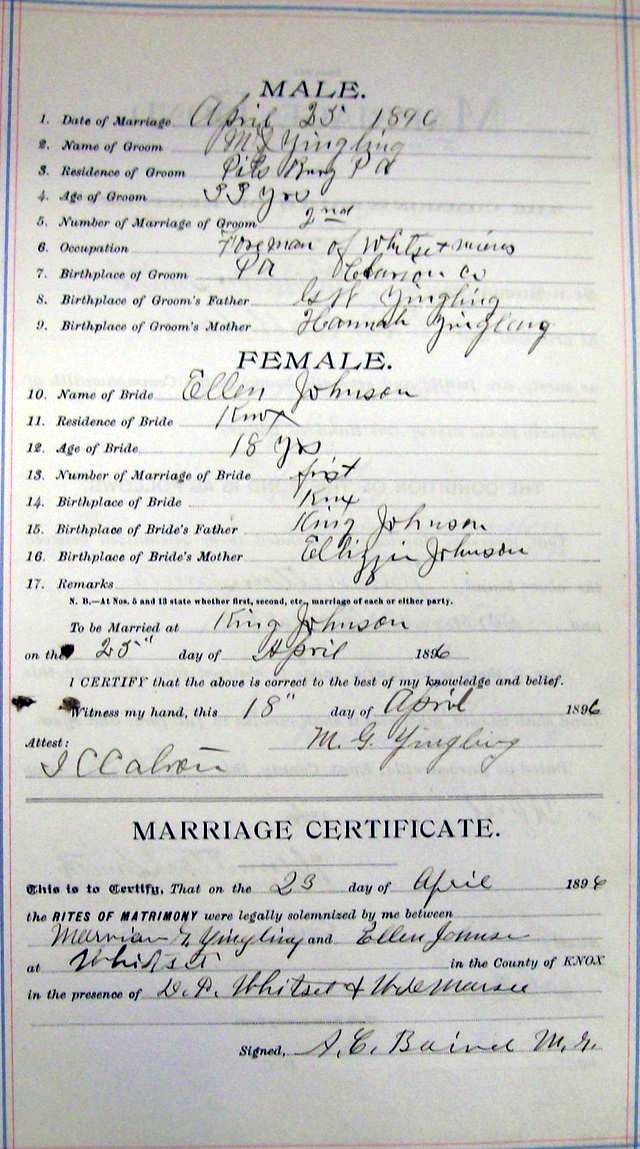 MALE.
1. Date of Marriage April 25 1896
2. Name of Groom M G Yingling
3. Residence of Groom Pits Burg Pa
4. Age of Groom 33 yrs
5. Number of Marriage of Groom 2nd
6. Occupation Foreman of Whitset mines
7. Birthplace of Groom Pa Clarion Co
8. Birthplace of Groom's Father G W Yingling
9. Birthplace of Groom's Mother Hannah Yingling
FEMALE.
10. Name of Bride Ellen Johnson
11. Residence of Bride Knox
12. Age of Bride 18 yrs
13. Number of Marriage of Bride first
14. Birthplace of Bride Knx
15. Birthplace of Bride's Father King Johnson
16. Birthplace of Bride's Mother Ellizzie Johnson
17. Remarks
N. B.—At Nos. 5 and 13 state whether first, second, etc., marriage of each or either party.
To be Married at King Johnson
on the 25" day of April 1896
I CERTIFY that the above is correct to the best of my knowledge and belief.
Witness my hand, this 18" day of April 1896
Attest: M. G. Yingling
MARRIAGE CERTIFICATE.
This is to Certify, That on the 23 day of April 1896
the RITES OF MATRIMONY were legally solemnized by me between
Yingling and Ellen Johnson
at Whitset in the County of KNOX
in the presence of D. P. Whitset &
Signed, A. C. M. G.